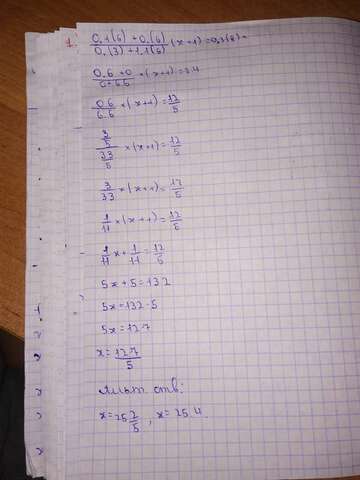 1. (0,1(6) + 0,(6))/(0,(3) + 1,1(6)) (x+1) = 0,3(8) =
(0.6 + 0)/(0+6.6) × (x+1) = 2.4
0.6/6.6 × (x+1) = 12/5
(3/5)/(33/5) × (x+1) = 12/5
3/33 × (x+1) = 12/5
1/11 × (x+1) = 12/5
1/11 x + 1/11 = 12/5
5x + 5 = 132
5x = 132 - 5
5x = 127
x = 127/5
x = 25 2/5, x = 25.4